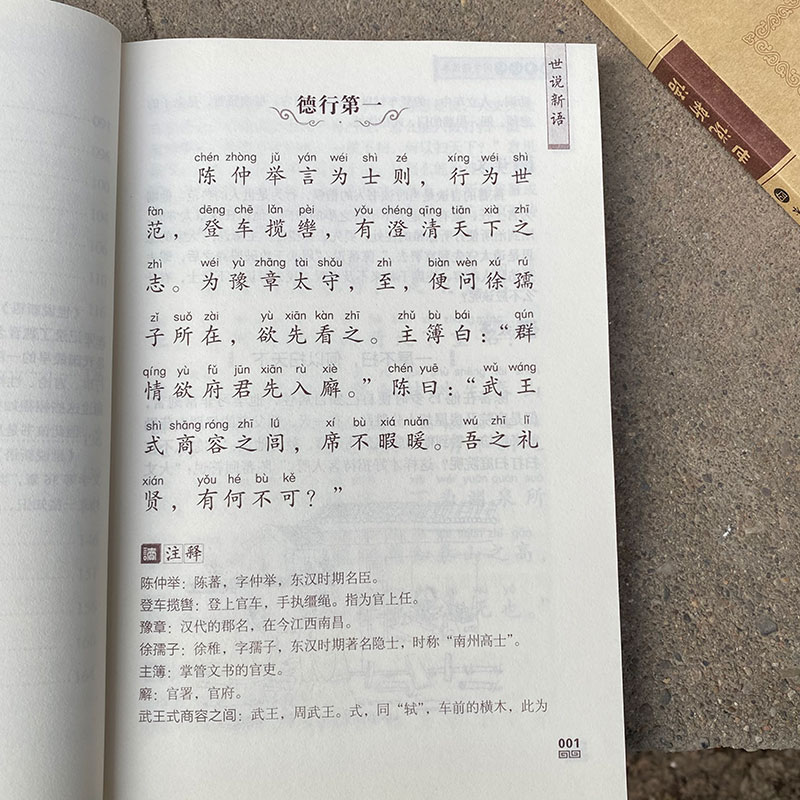 世说新语
德行第一
chén zhòng jǔ yán wéi shì zé xíng wéi shì
陈仲举言为士则，行为世
fàn dēng chē lǎn pèi yǒu chéng qīng tiān xià zhī
范，登车揽辔，有澄清天下之
zhì wéi yù zhāng tài shǒu zhì biàn wèn xú rú
志。为豫章太守，至，便问徐孺
zǐ suǒ zài yù xiān kàn zhī zhǔ bù bái qún
子所在，欲先看之。主簿白：“群
qíng yù fǔ jūn xiān rù xiè chén yuē wǔ wáng
情欲府君先入廨。”陈曰：“武王
shì shāng róng zhī lǘ xí bù xiá nuǎn wú zhī lǐ
式商容之闾，席不暇暖。吾之礼
xián yǒu hé bù kě
贤，有何不可？”
读 注释
陈仲举：陈蕃，字仲举，东汉时期名臣。
登车揽辔：登上官车，手执缰绳。指为官上任。
豫章：汉代的郡名，在今江西南昌。
徐孺子：徐稚，字孺子，东汉时期著名隐士，时称“南州高士”。
主簿：掌管文书的官吏。
廨：官署，官府。
武王式商容之闾：武王，周武王。式，同“轼”，车前的横木，此为
001
世说新语